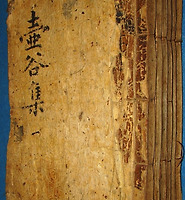 壺谷集
一